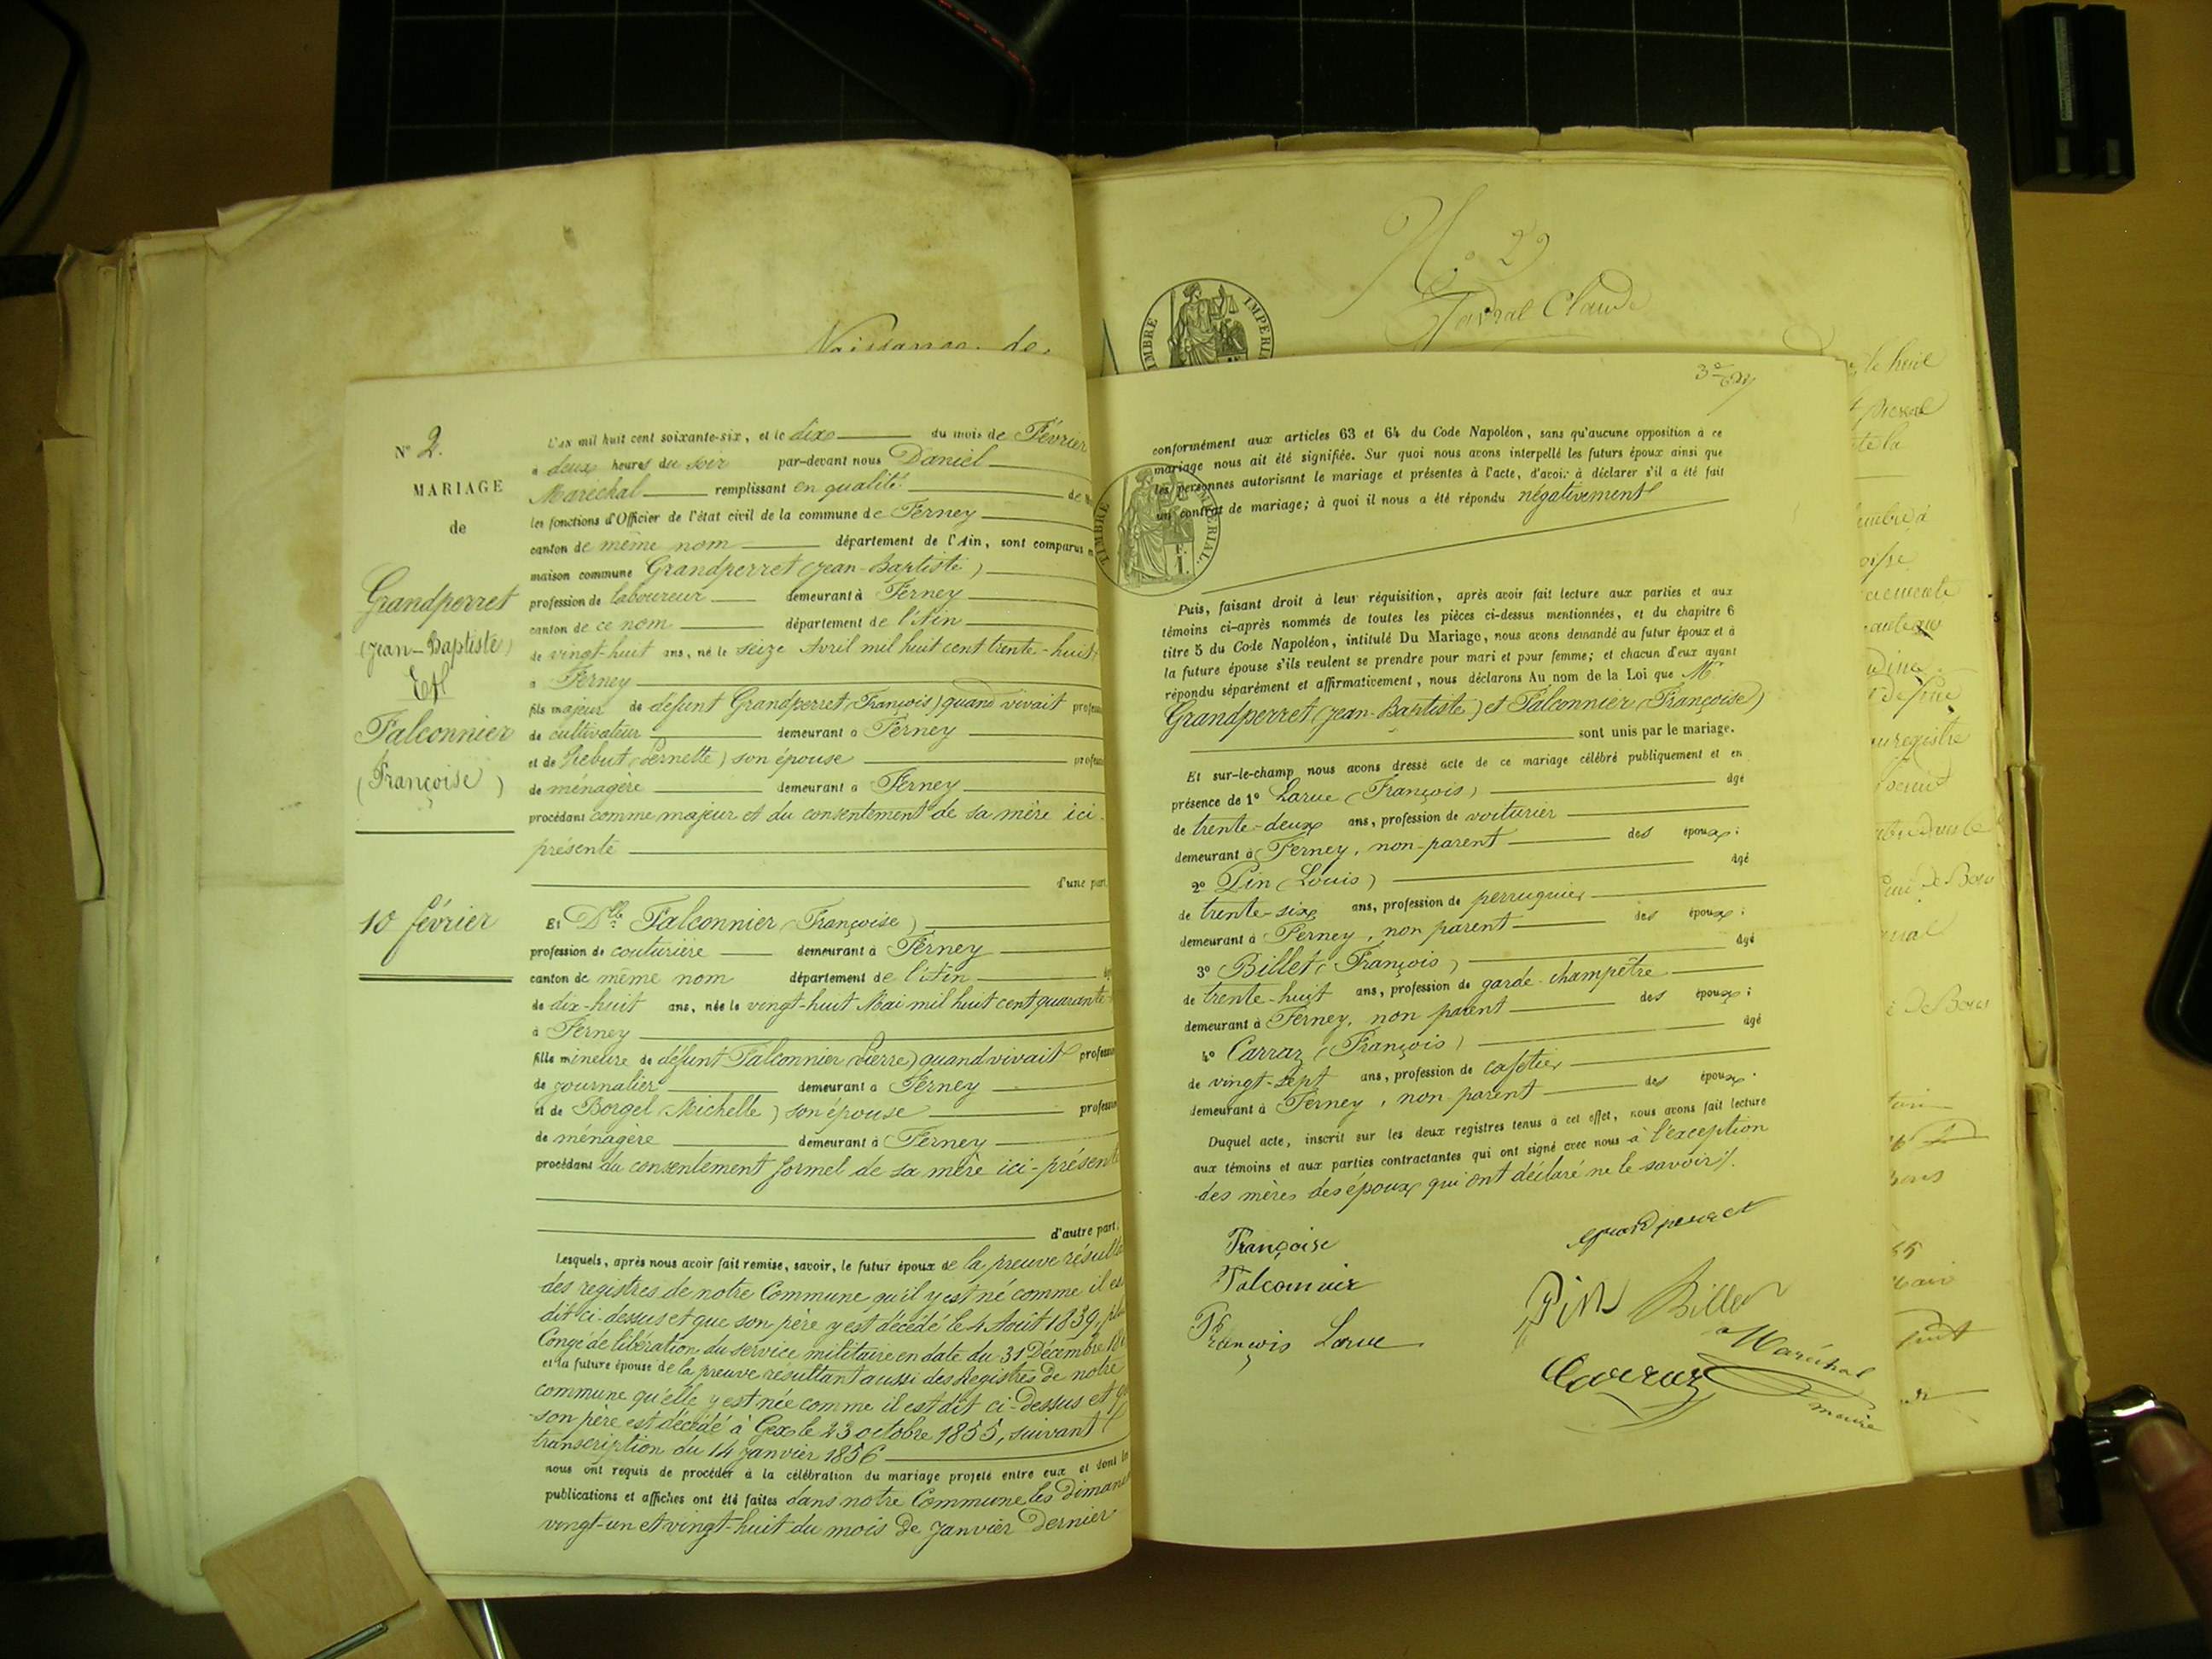 Naissance de
N° 2.
MARIAGE
de
Grandperret
(Jean-Baptiste)
Et
Falconnier
(Françoise)
10 février
L'an mil huit cent soixante-six, et le dix du mois de Février
à deux heures du soir par-devant nous Daniel
Maréchal remplissant en qualité de
les fonctions d'Officier de l'état civil de la commune de Ferney
canton de même nom département de l'Ain, sont comparus en
maison commune Grandperret (Jean-Baptiste)
profession de laboureur demeurant à Ferney
canton de ce nom département de l'Ain
de vingt-huit ans, né le seize Avril mil huit cent trente-huit
à Ferney
fils majeur de défunt Grandperret (François) quand vivait profess
de cultivateur demeurant à Ferney
et de Rebut (Pernette) son épouse profess
de ménagère demeurant à Ferney
procédant comme majeur et du consentement de sa mère ici
présente
d'une part,
Et Dlle Falconnier (Françoise)
profession de couturière demeurant à Ferney
canton de même nom département de l'Ain
de dix-huit ans, née le vingt-huit Mai mil huit cent quarante-
à Ferney
fille mineure de défunt Falconnier (Pierre) quand vivait profess
de journalier demeurant à Ferney
et de Borgel (Michelle) son épouse profession
de ménagère demeurant à Ferney
procédant du consentement formel de sa mère ici-présente
d'autre part.
Lesquels, après nous avoir fait remise, savoir, le futur époux de la preuve résulta
des registres de notre Commune qu'il y est né comme il est
dit ci-dessus et que son père y est décédé le 4 Août 1839,
Congé de libération du service militaire en date du 31 Décembre
et la future épouse de la preuve résultant aussi des Registres de notre
commune qu'elle y est née comme il est dit ci-dessus et
son père est décédé à Gex le 23 octobre 1855, suivant
transcription du 14 janvier 1856
nous ont requis de procéder à la célébration du mariage projeté entre eux et dont les
publications et affiches ont été faites dans notre Commune les diman
vingt-un et vingt-huit du mois de Janvier dernier
N° 2
Claude
TIMBRE IMPERIAL
conformément aux articles 63 et 64 du Code Napoléon, sans qu'aucune opposition à ce
mariage nous ait été signifiée. Sur quoi nous avons interpellé les futurs époux ainsi que
les personnes autorisant le mariage et présentes à l'acte, d'avoir à déclarer s'il a été fait
un contrat de mariage; à quoi il nous a été répondu négativement
TIMBRE IMPERIAL.
Puis, faisant droit à leur réquisition, après avoir fait lecture aux parties et aux
témoins ci-après nommés de toutes les pièces ci-dessus mentionnées, et du chapitre 6
titre 5 du Code Napoléon, intitulé Du Mariage, nous avons demandé au futur époux et à
la future épouse s'ils veulent se prendre pour mari et pour femme; et chacun d'eux ayant
répondu séparément et affirmativement, nous déclarons Au nom de la Loi que M
Grandperret (Jean-Baptiste) et Falconnier (Françoise)
sont unis par le mariage.
Et sur-le-champ nous avons dressé acte de ce mariage célébré publiquement et en
présence de 1° Larue (François) âgé
de trente-deux ans, profession de voiturier
demeurant à Ferney, non-parent des époux;
2° Pin (Louis) âgé
de trente-six ans, profession de perruquier
demeurant à Ferney, non parent des époux;
3° Billet (François) âgé
de trente-huit ans, profession de garde-champêtre
demeurant à Ferney, non parent des époux;
4° Carraz (François) âgé
de vingt-sept ans, profession de cafetier
demeurant à Ferney, non parent des époux.
Duquel acte, inscrit sur les deux registres tenus à cet effet, nous avons fait lecture
aux témoins et aux parties contractantes qui ont signé avec nous à l'exception
des mères des époux qui ont déclaré ne le savoir.
Françoise
Falconnier
François Larue
grandperret
Pin Billet
Carraz
Maréchal
maire